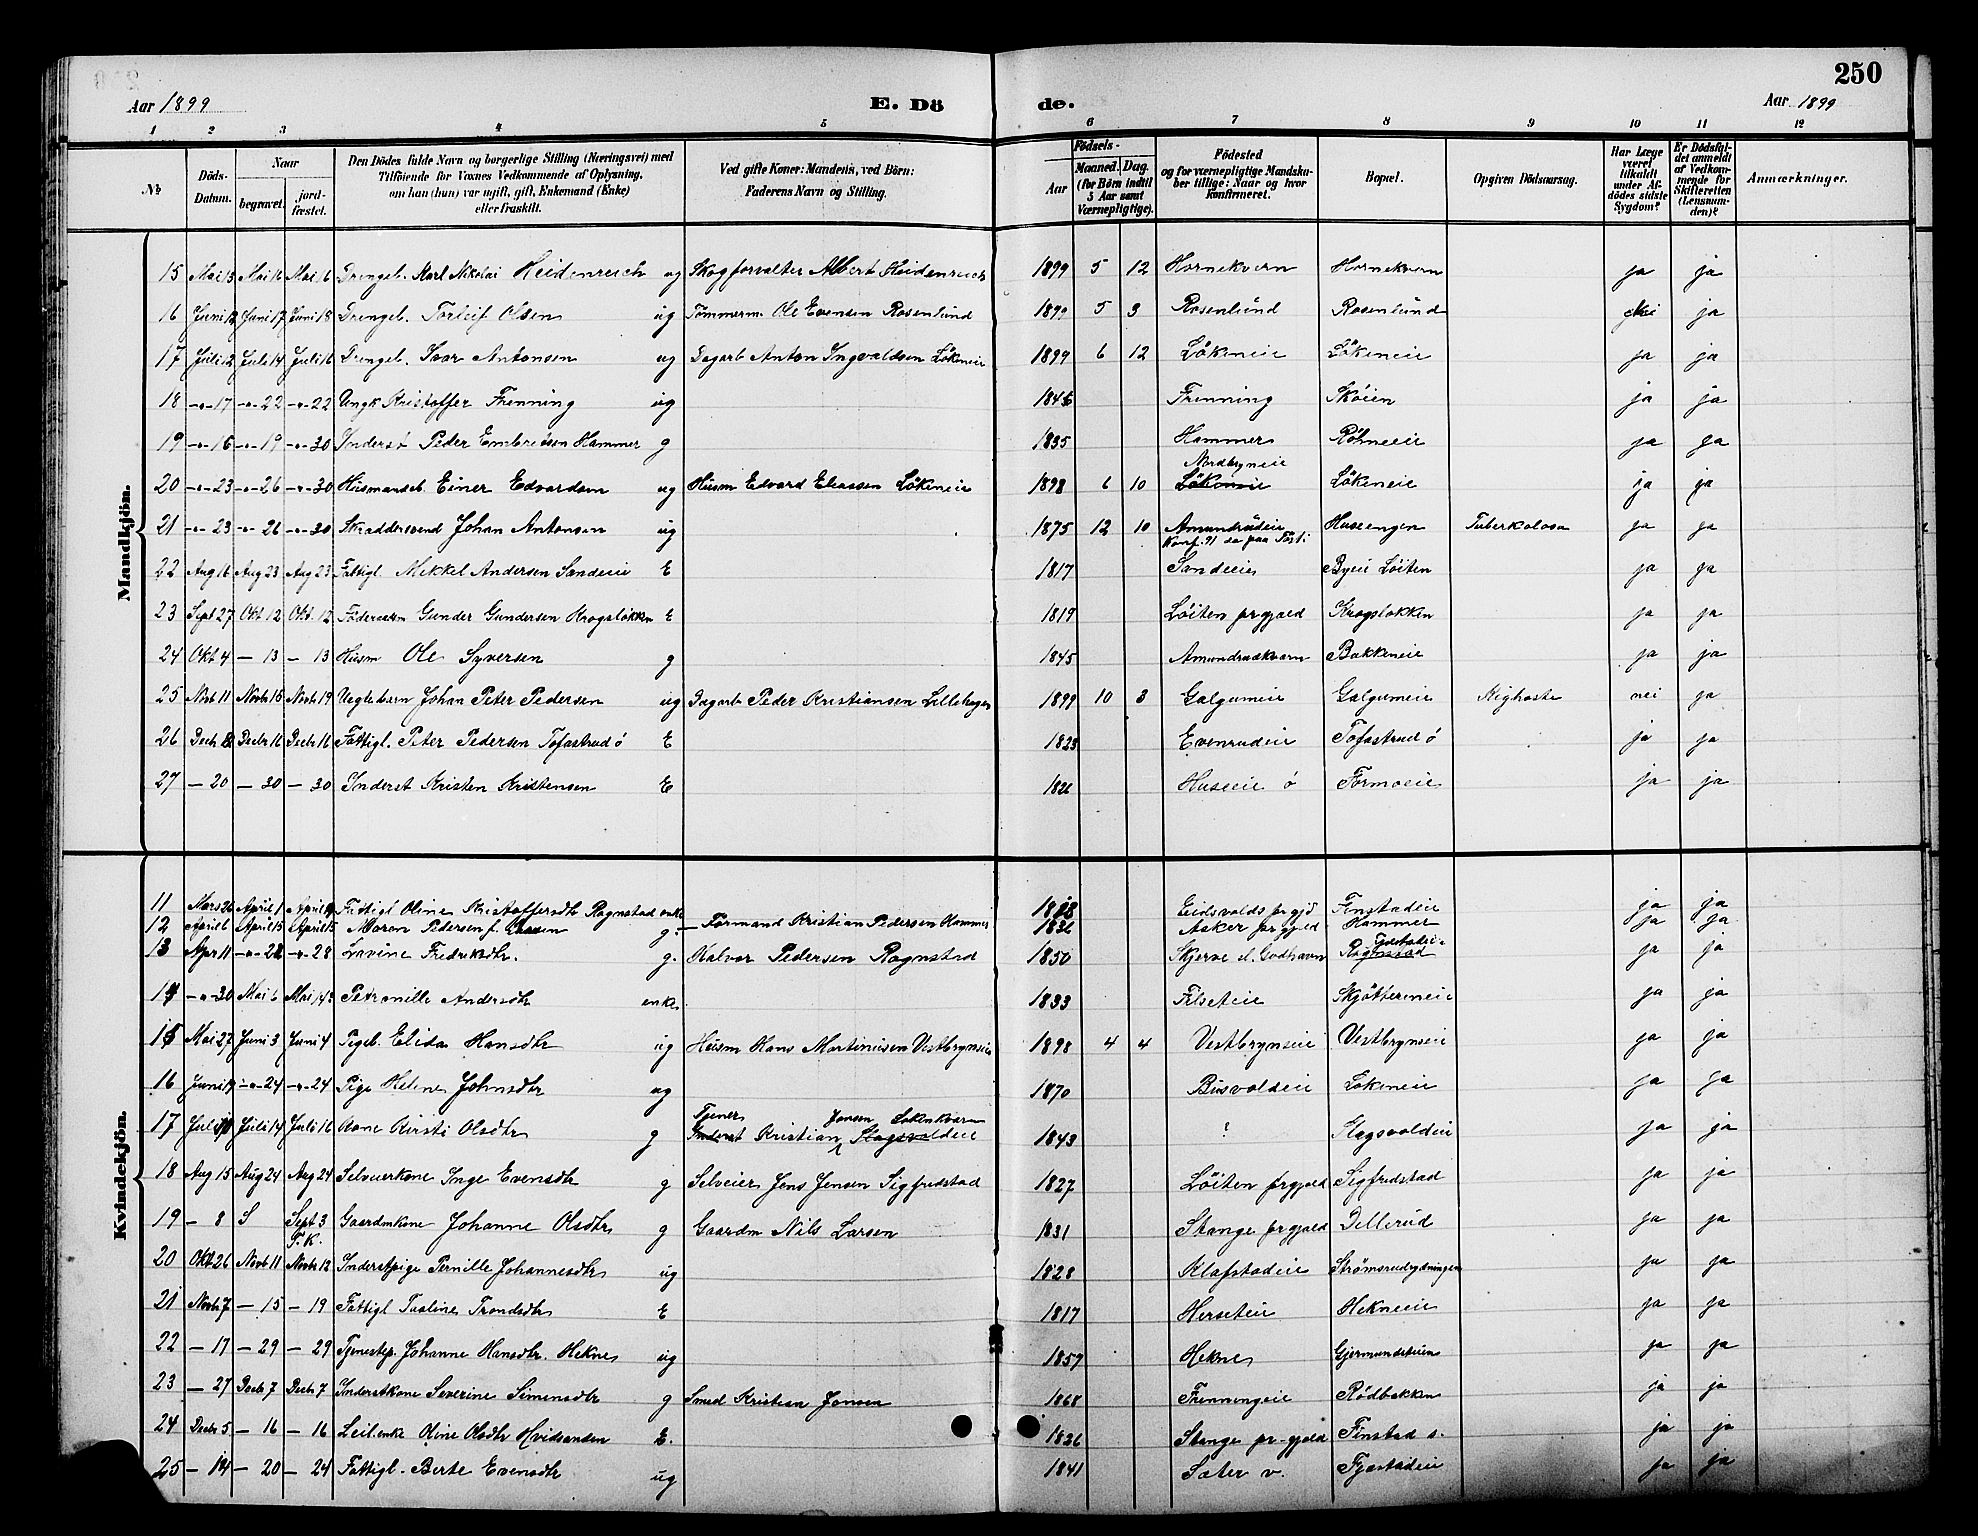 250
Aar 1899 E. Dö de. Aar 1899
1 2 3 4 5 6 7 8 9 10 11 12
№
Döds-Datum.
Naar
begravet.
jord-fæstet.
Den Dödes fulde Navn og borgerlige Stilling (Næringsvei) med
Tilföiende for Voxnes Vedkommende af Oplysning,
om han (hun) var ugift, gift, Enkemand (Enke)
eller fraskilt.
Ved gifte Koner: Mandens, ved Börn:
Faderens Navn og Stilling.
Födsels-
Aar
Maaned. Dag.
(for Börn indtil
5 Aar samt
Værnepligtige).
Födested
og for værnepligtige Mandska-
ber tillige: Naar og hvor
konfirmeret.
Bopæl.
Opgiven Dödsaarsag.
Har Læge
været
tilkaldt
under Af-
dödes sidste
Sygdom?
Er Dödsfal-
det anmeldt
af Vedkom-
mende for
Skifteretten
(Lensman-
den)?
Anmærkninger.
Mandkjön.
15 Mai 13 Mai 16 Mai 16 Drengeb. Karl Nikolai Heidenreich ug Skogforvalter Albert Heidenreich 1899 5 12 Hornekvern Hornekvern ja ja
16 Juni 12 Juni 17 Juni 18 Drengeb. Torleif Olsen ug Tömmerm. Ole Evensen Rosenlund 1899 5 3 Rosenlund Rosenlund nei ja
17 Juli 12 Juli 14 Juli 16 Drengeb. Ivar Antonsen ug Dagarb Anton Ingvaldsen Lökeneie 1899 6 12 Lökeneie Lökeneie ja ja
18 -"- 17 -"- 22 -"- 22 Ungk Kristoffer Frenning ug Frenning Sköien ja ja
19 -"- 16 -"- 19 -"- 30 Inderst Peder Embretsen Hammer g 1835 Hammer ja ja
20 -"- 23 -"- 26 -"- 30 Husmandsb. Einer Edvardsen ug Husm Edvard Eliassen Lökeneie 1898 6 10 Nordbryneie Lökeneie Lökeneie ja ja
21 -"- 23 -"- 26 -"- 30 Skræddersvend Johan Antonsen ug 1875 12 10 Amundrudeie Huseengen Tuberkolose ja ja
Konf. 91
22 Aug 16 Aug 23 Aug 23 Fattigl. Mikkel Andersen Sandeie E 1817 Sandeie Byeie Löiten ja ja
23 Sept 27 Okt 12 Okt. 12 Föderaadsm Gunder Gundersen Krogslokken E 1819 Löiten prgjæld Krogslokken ja ja
24 Okt 4 - 13 - 13 Husm Ole Syversen g 1845 Amundrudkvern Bakkeneie ja ja
25 Novb 11 Novbr 15 Novbr 19 Uegtebarn Johan Peter Pedersen ug Dagarb Peder Kristiansen Lillehagen 1899 10 3 Galgumeie Galgumeie Kighoste nei ja
26 Decb 8 Decbr 16 Decbr 16 Fattigl. Peter Pedersen Tofastrud ö E 1823 Evenrudeie Tofastrud ö ja ja
27 - 20 - 30 - 30 Inderst Kristen Kristensen E Huseeie ö Formoeie ja ja
Kvindekjön.
11 Mars 26 April 1 April Fattigl Oline Kristoffersdtr Rognstad enke Eidsvolds prgjd Finstadeie ja ja
12 April 6 April 15 April 15 Maren Pedersen f. g. - Formand Kristian Pedersen Hammer Asker prgjæld Hammer ja ja
13 Apr 11 -"- 22 -"- 28 Lovine Fredriksdtr. g. Halvor Pedersen Rognstad 1850 Skjerve el. Godhavn Rognstad ja ja
14 -"- 30 Mai 6 Mai 14 Petronille Andersdtr enke. 1833 Filseteie ja ja
15 Mai 27 Juni 3 Juni 4 Pigeb. Elida Hansdtr ug Husm Hans Martinusen Vestbrynseie 1898 4 4 Vestbrynseie Vestbrynseie ja ja
16 Juni 19 -"- 24 -"- 24 Pige Helene Johnsdtr ug 1870 Busvoldeie Lökeneie ja ja
17 Juli 10 Juli 14 Juli 16 Kone Kirsti Olsdtr g Tjener Inderst Kristian Jonsen Lokenkvern Slagsvoldeie 1843 ? Slagsvoldeie ja ja
18 Aug 15 Aug 24 Aug 24 Selveierkone Inge Evensdtr g Selveier Jens Jensen Sigfredstad 1827 Löiten prgjæld Sigfredstad ja ja
19 - 8 S Sept 3 Gaardmkone Johanne Olsdtr g Gaardm Nils Larsen 1831 Stange prgjæld Dellerud ja ja
20 Okt 26 Novb 11 Novbr 12 Inderstpige Pernille Johannesdtr ug 1828 Klafstadeie Strömsrudrydningen ja ja
21 Novbr 7 - 15 - 19 Fattigl Pauline Trondsdtr E 1817 Herseteie Hekneeie ja ja
22 - 17 - 29 - 29 Tjenestep. Johanne Hansdtr. Hekne ug 1857 Hekne ja ja
23 - 27 Decbr 7 Decbr 7 Inderstkone Severine Simensdtr g Smed Kristian Jonsen 1868 Frenningeie Rödbakken ja ja
24 Decbr 5 - 16 - 16 Leil.enke Oline Olsdtr Hvidsanden E. 1826 Stange pr-gjæld Finstad s. ja ja
25 - 14 - 20 - 24 Fattigl. Berte Evensdtr ug 1841 Sæter v. Fjæstadeie ja ja